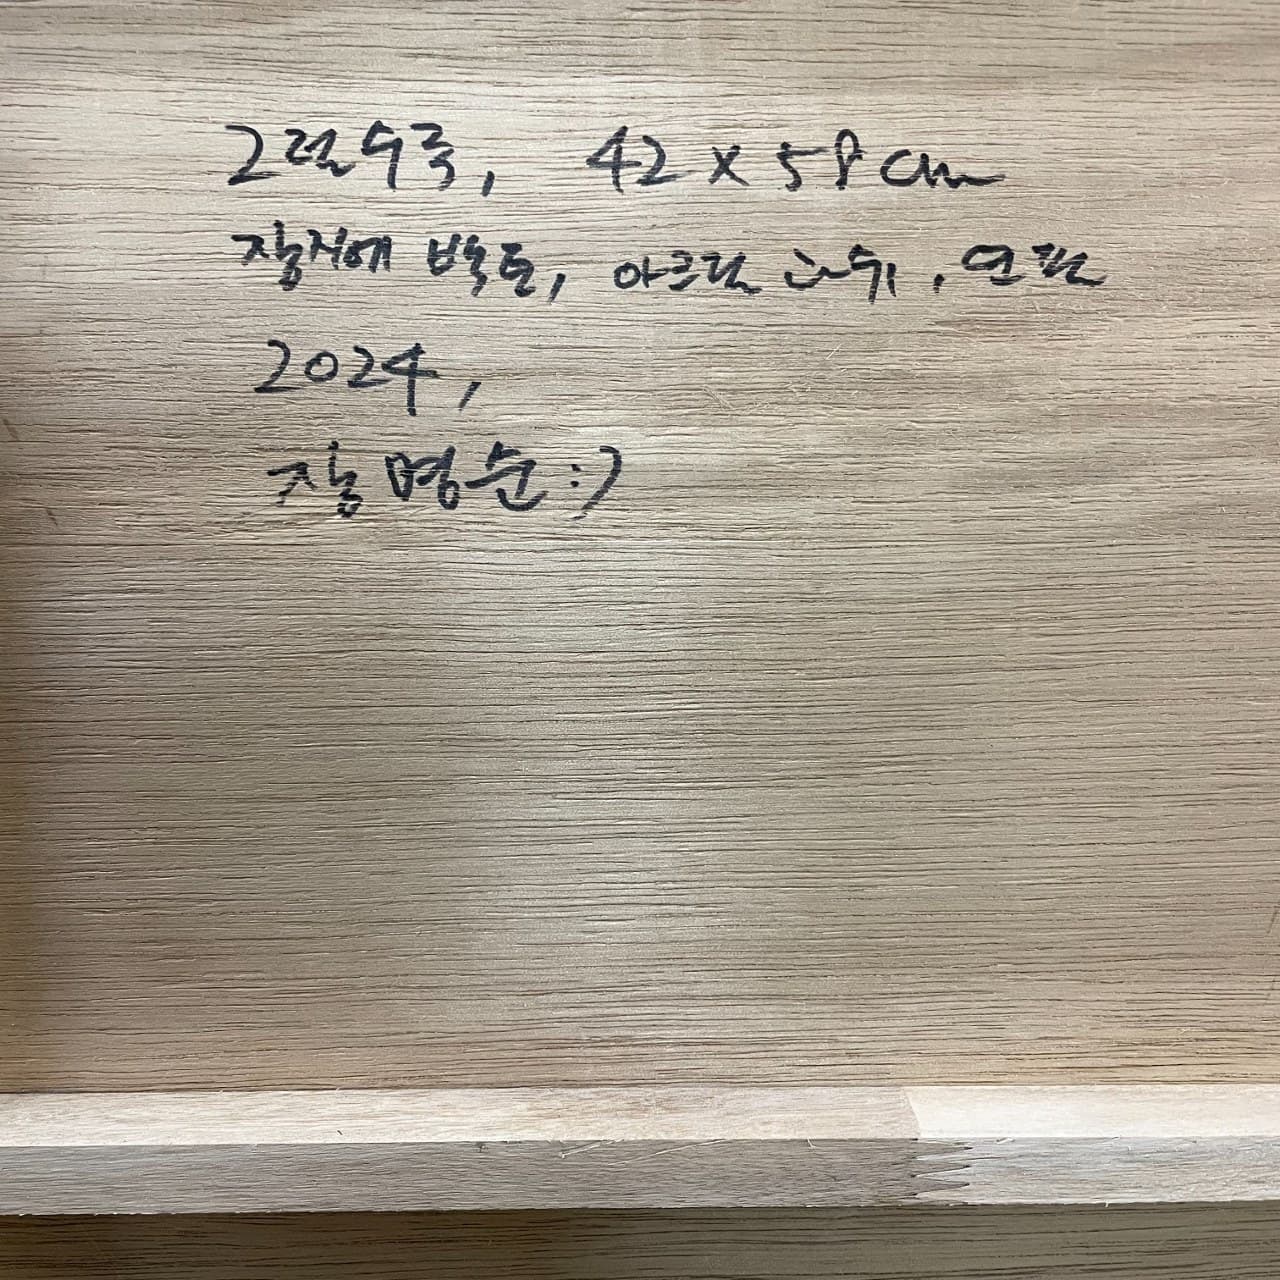 그럴수록, 42 x 58 cm
장지에 백토, 아크릴 과슈, 연필
2024,
장명순 :)